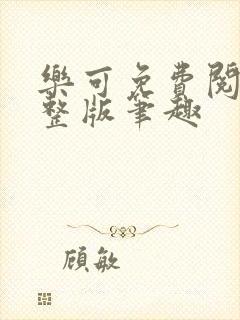 樂可免費閱
整版筆趣
顾敏